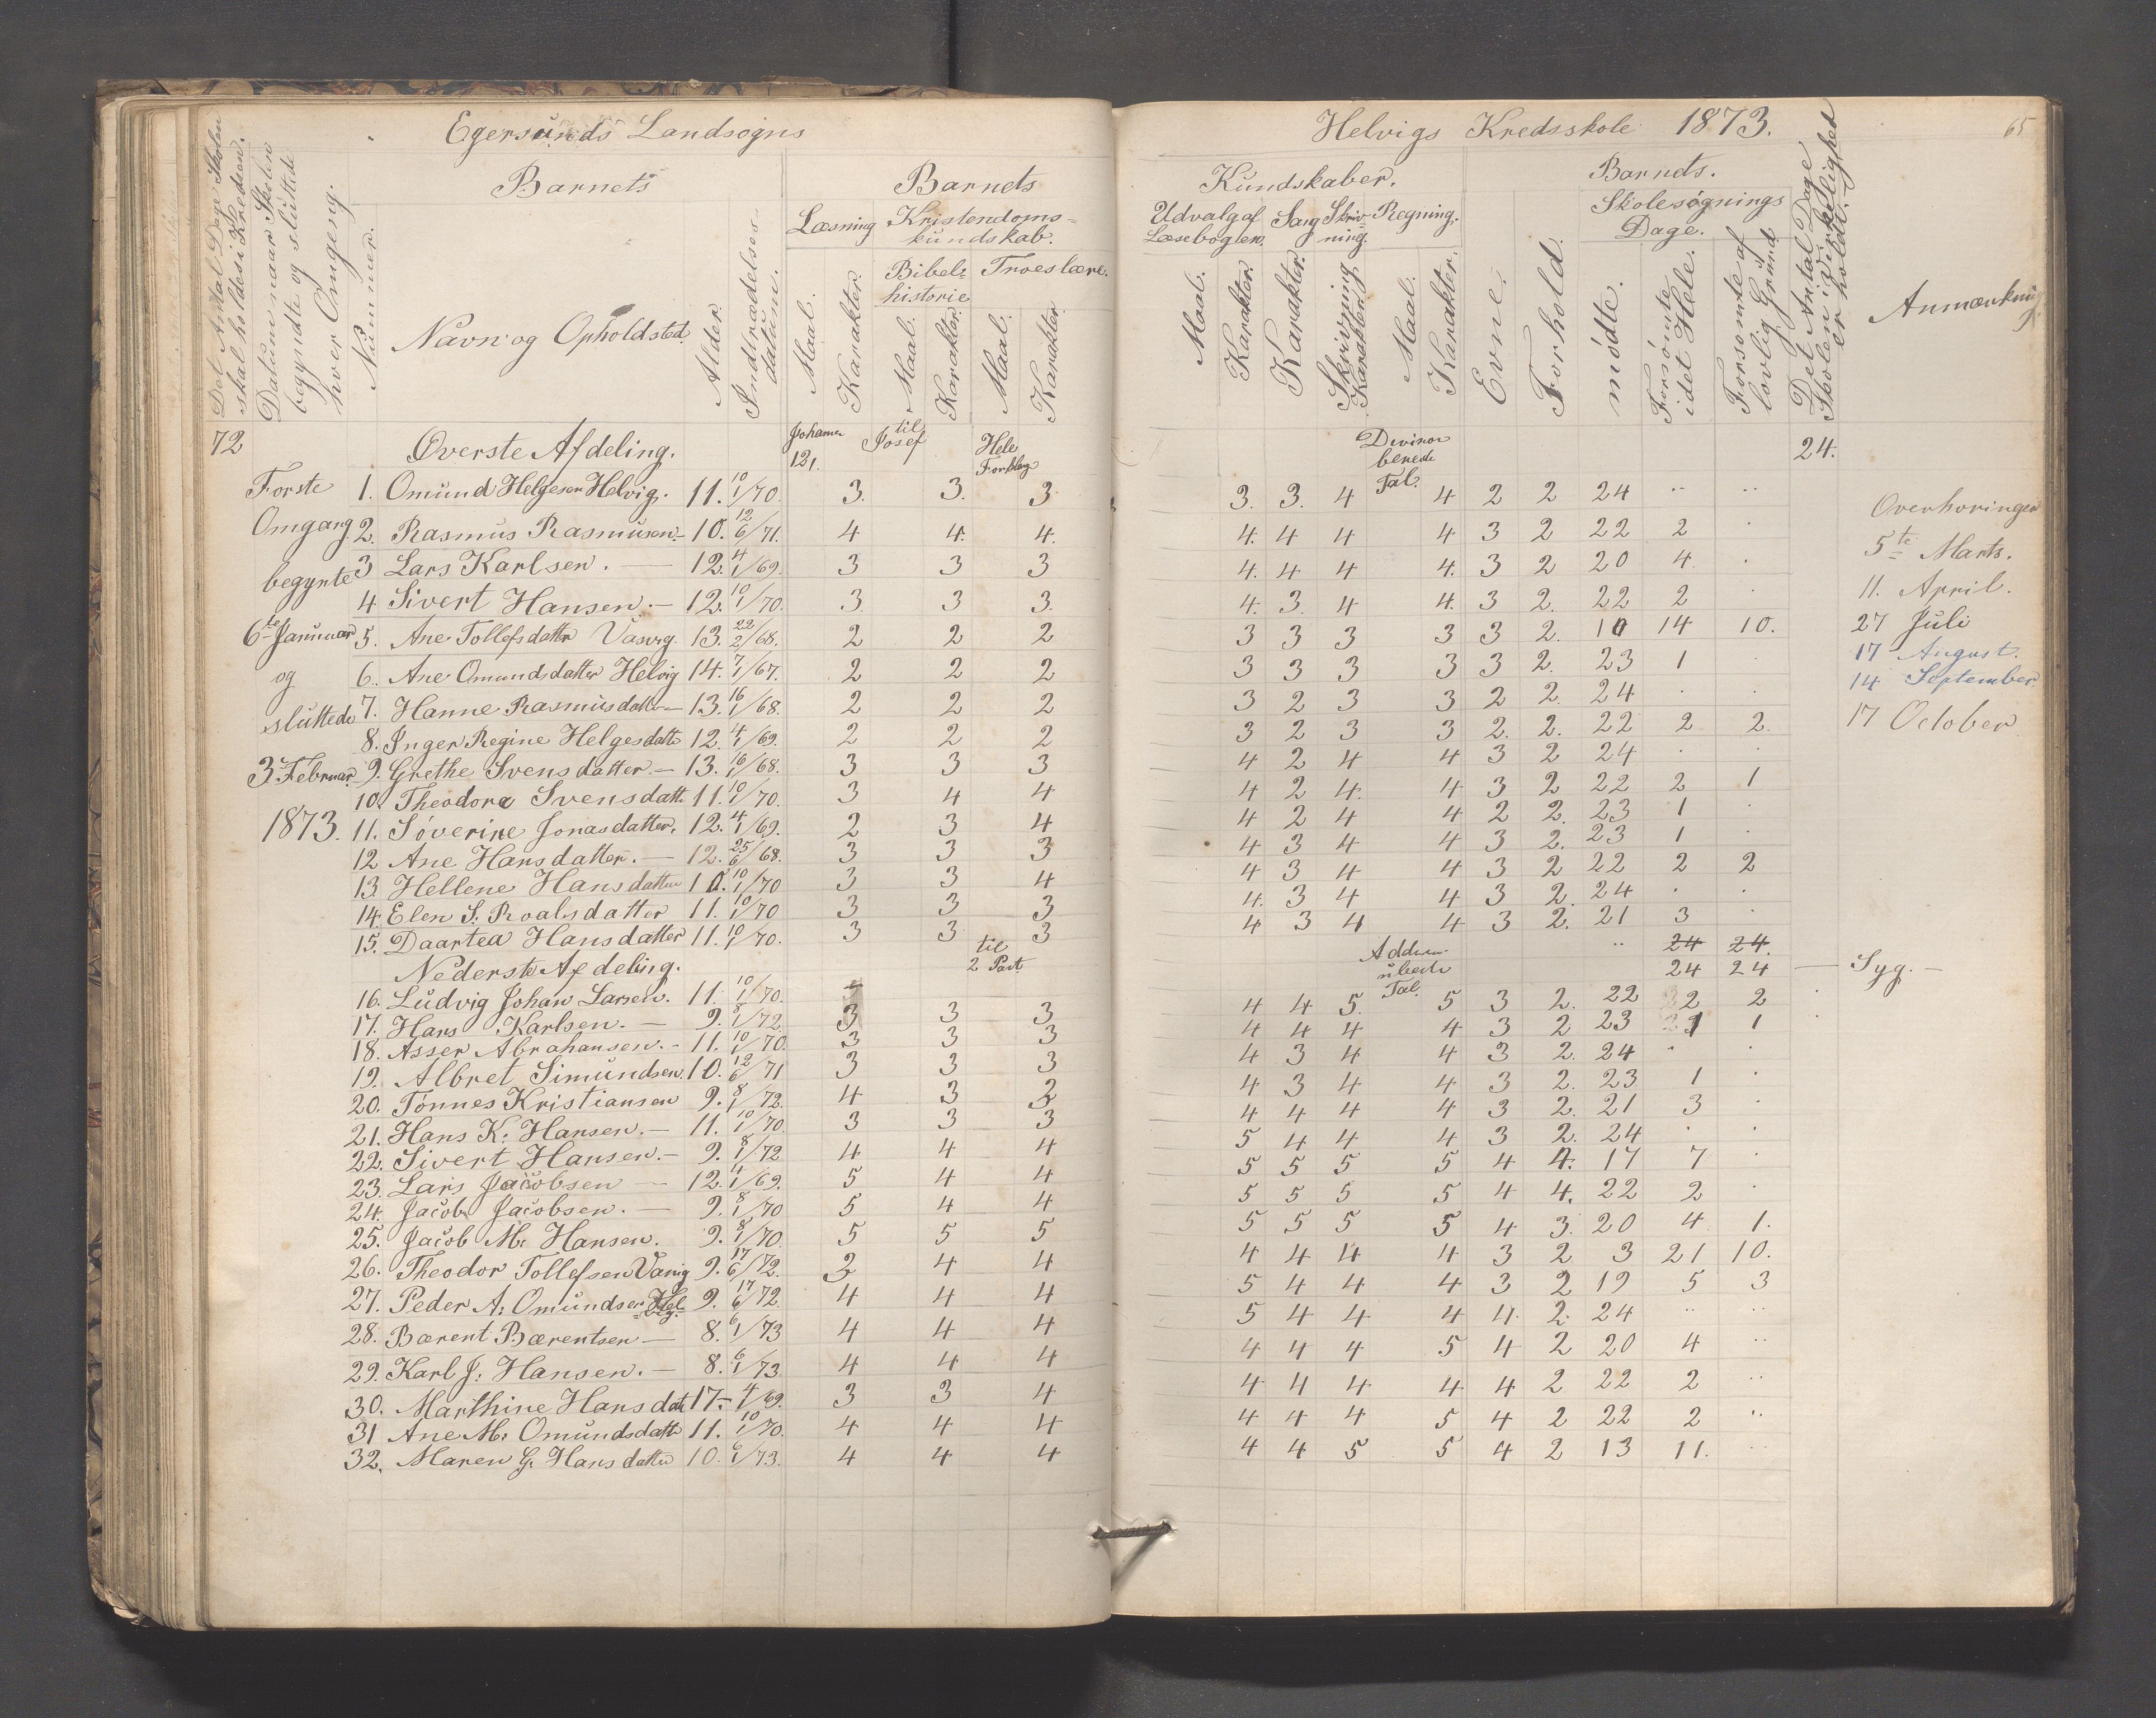 Egersunds Landsogns
Helvigs Kredsskole 1873.
65
Det Antal Dage Skolen
skal holdes i Kredsen.
Datum naar Skolen
begyndte og sluttede
hver Omgeng.
Nummer.
Barnets
Navn og Opholdsted.
Alder.
Indtrædelses-
datum.
Barnets
Læsning
Kristendoms-
kundskab.
Bibel-
historie
Troeslære.
Maal. Karakter. Maal. Karakter. Maal. Karakter.
Kundskaber.
Udvalg af
Læsebogen.
Sang
Skriv-
ning.
Regning.
Maal. Karakter. Karakter. Skrivning Karakter. Maal. Karakter.
Evne. Forhold.
Barnets.
Skolesøgnings
Dage.
mødte.
Forsømte
i det Hele.
Forsømte af
lovlig Grund
Det Antal Dage
Skolen i Virkelighed
er holdt.
Anmærkning
72 Øverste Afdeling. Johannes 121. til Josef Hele Forklag 24.
Forste
Omgang
begynte
6te Januuar
og
sluttede
3 Februar
1873.
1. Omund Helgesen Helvig. 11. 10/1/70. 3. 3. 3 3. 3. 4 Tal. 4 2 2 24 .. ..
2. Rasmus Rasmusen. - 10. 12/6/71. 4 4. 4. 4. 4 4 4 3 2 22 2 .
3 Lars Karlsen. — 12. 4/1/69. 3 3 3 4. 4 4 4. 3 2 20 4. .
4 Sivert Hansen. - 12. 10/1/70. 3. 3 3. 4. 3. 4 4. 3 2. 22 2 .
5. Ane Tollefsdatter Vasvig. 13. 22/2/68. 2 2 2 3 3 3 3 3 2. 10 14 10.
6. Ane Omundsdatter Helvig 14. 7/1/67. 2 2 2 3 3 3 3 3 2. 23 1 .
7. Hanne Rasmusdatter - 13. 16/1/68. 2 2 2 3 2 3 3 2 2. 24 . .
8. Inger Regine Helgesdatte 12. 4/1/69. 2 2 2 3 2 3 3 2. 2. 22 2 2.
9. Grethe Svensdatter - 13. 16/1/68. 3 3 3 4 2 4 4 3 2 24 . .
10. Theodora Svensdatt. 11. 10/1/70. 3 4 4 4 2 4. 4 3 2 22 2 1
11. Søverine Jonasdatter. 12. 4/1/69. 2 3 4 4 2 4 4 2 2. 23 1 .
12 Ane Hansdatter. - 12. 25/6/68. 3 3 3 4 3 4 4 3 2. 23 1 .
13. Hellene Hansdatter 10. 10/1/70 3 3 4 4 3 4 4 3 2 22 2 2
14. Elen S. Roalsdatter 11. 10/1/70 3 3 3 4. 3 4 4 3 2. 24 . .
15. Daartea Hansdatter 11. 10/1/70. 3 3 3 4 3 4 4 3 2. 21 3 .
Nederste Afdeling. til 2 Part .. 24 24.
16. Ludvig Johan Larsen. 11. 10/1/70. 24 24 — Syg. —
17. Hans Karlsen. - 9. 8/1/72. 3 3 3 4 4 5. Tal. 5 3 2. 22 2 2
18. Asser Abrahansen. - 11. 10/1/70. 3 3 3 4 4 4 4 3 2 23 1 1
19. Albret Simundsen. 10. 12/6/71 3 3 3 4 3 4 4 3 2. 24 . .
20. Tønnes Kristiansen 9. 8/1/72. 4 3 3 4 3 4 4 3 2. 23 1 .
21. Hans K: Hansen. - 11. 10/1/70. 3 3 3 4 4 4 4 3 2. 21 3 .
22. Sivert Hansen. - 9. 8/1/72 4 4 4 5 4 4 4 3 2. 24 . .
23. Lars Jacobsen — 12. 4/1/69. 5 4 4 5 5 5 5 4 4. 17 7 .
24. Jacob Jacobsen. — 9. 8/1/70 5 4 4 5 5 5 5 4 4. 22 2 .
25. Jacob M: Hansen. 9. 8/1/70. 5 5 5 5 5 5 5 4 3. 20 4 1.
26. Theodor Tollefsen Vasvig 9. 17/6/72. 3 4 4 4 4 4 4 3 2 3 21 10.
27. Peder A: Omundsen Helvig. 9. 17/6/72. 4 4 4 5 4 4 4 3 2 19 5 3
28. Bærent Bærentsen — 8. 6/1/73 4 4 4 5 4 4 4 4 2. 24 .. ..
29. Karl J: Hansen. — 8. 6/1/73 4 4 4 4 4 4 5 4 2 20 4 ..
30. Marthine Hansdatt 17 - 4/1/69. 3 3 4 4 4 4 4 4 2 22 2 ..
31 Ane M: Omundsdatte 11. 10/1/70. 4 4 4 4 4 4 5 4 2 22 2 ..
32. Maren G. Hansdatter 10. 6/1/73. 4 4 4 4 4 5 5 4 2 13 11. ..
Overhøringer
5te Marts.
11. April.
27 Juli
17 August.
14 September.
17 October